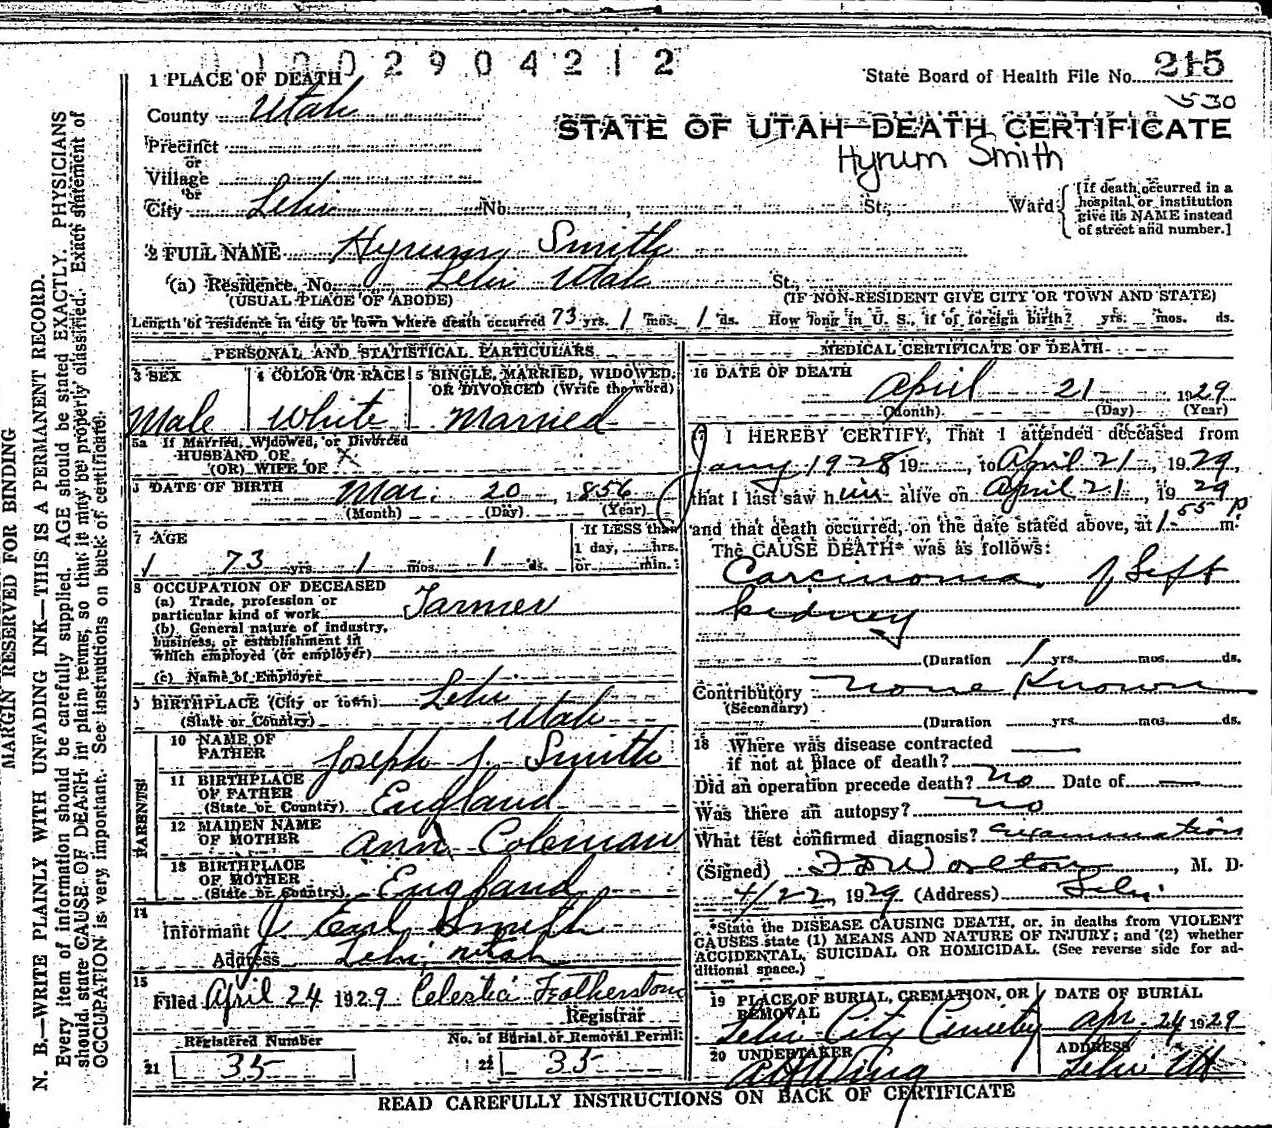 1002904212
1 PLACE OF DEATH
State Board of Health File No. 215
530
County Utah
STATE OF UTAH—DEATH CERTIFICATE
Hyrum Smith
Precinct
or
Village
or
City Lehi No. , St., Ward
[If death occurred in a hospital or institution give its NAME instead of street and number.]
2 FULL NAME Hyrum Smith
(a) Residence. No. Lehi Utah St.,
(USUAL PLACE OF ABODE) (IF NON-RESIDENT GIVE CITY OR TOWN AND STATE)
Length of residence in city or town where death occurred 73 yrs. 1 mos. 1 ds. How long in U. S., if of foreign birth? yrs. mos. ds.
PERSONAL AND STATISTICAL PARTICULARS
3 SEX
Male
4 COLOR OR RACE
White
5 SINGLE, MARRIED, WIDOWED,
OR DIVORCED (Write the word)
Married
5a If Married, Widowed, or Divorced
HUSBAND OF
(OR) WIFE OF X
DATE OF BIRTH Mar. 20, 1856
(Month) (Day) (Year)
7 AGE
73 yrs. 1 mos. 1 ds.
If LESS than
1 day, hrs.
or min.
8 OCCUPATION OF DECEASED
(a) Trade, profession or
particular kind of work Farmer
(b) General nature of industry,
business, or establishment in
which employed (or employer)
(c) Name of Employer
9 BIRTHPLACE (City or town) Lehi
(State or Country) Utah
PARENTS
10 NAME OF
FATHER Joseph J. Smith
11 BIRTHPLACE
OF FATHER
(State or Country) England
12 MAIDEN NAME
OF MOTHER Ann Coleman
13 BIRTHPLACE
OF MOTHER
(State or Country) England
14
Informant J. Earl Smith
Address Lehi Utah
15
Filed April 24 1929 Celestia Featherstone
Registrar
Registered Number
21 35
No. of Burial or Removal Permit
22 35
MEDICAL CERTIFICATE OF DEATH
16 DATE OF DEATH
April 21 1929
(Month) (Day) (Year)
17 I HEREBY CERTIFY, That I attended deceased from
Jany 1928 19, to April 21, 1929,
that I last saw him alive on April 21, 1929
and that death occurred, on the date stated above, at 1 55 P m.
The CAUSE DEATH* was as follows:
Carcinoma of Left
kidney
(Duration 1 yrs. mos. ds.
Contributory None Known
(Secondary)
(Duration yrs. mos. ds.
18 Where was disease contracted
if not at place of death?
Did an operation precede death? no Date of
Was there an autopsy? no
What test confirmed diagnosis? examination
(Signed) Worlton, M. D.
4/22 1929 (Address) Lehi
*State the DISEASE CAUSING DEATH, or, in deaths from VIOLENT
CAUSES state (1) MEANS AND NATURE OF INJURY; and (2) whether
ACCIDENTAL, SUICIDAL OR HOMICIDAL. (See reverse side for ad-
ditional space.)
19 PLACE OF BURIAL, CREMATION, OR
REMOVAL
Lehi City
DATE OF BURIAL
Apr. 24 1929
20 UNDERTAKER
A H Wing
ADDRESS
Lehi Ut
READ CAREFULLY INSTRUCTIONS ON BACK OF CERTIFICATE
MARGIN RESERVED FOR BINDING
N. B.—WRITE PLAINLY WITH UNFADING INK—THIS IS A PERMANENT RECORD.
Every item of information should be carefully supplied. AGE should be stated EXACTLY. PHYSICIANS
should state CAUSE OF DEATH in plain terms, so that it may be properly classified. Exact statement of
OCCUPATION is very important. See instructions on back of certificate.